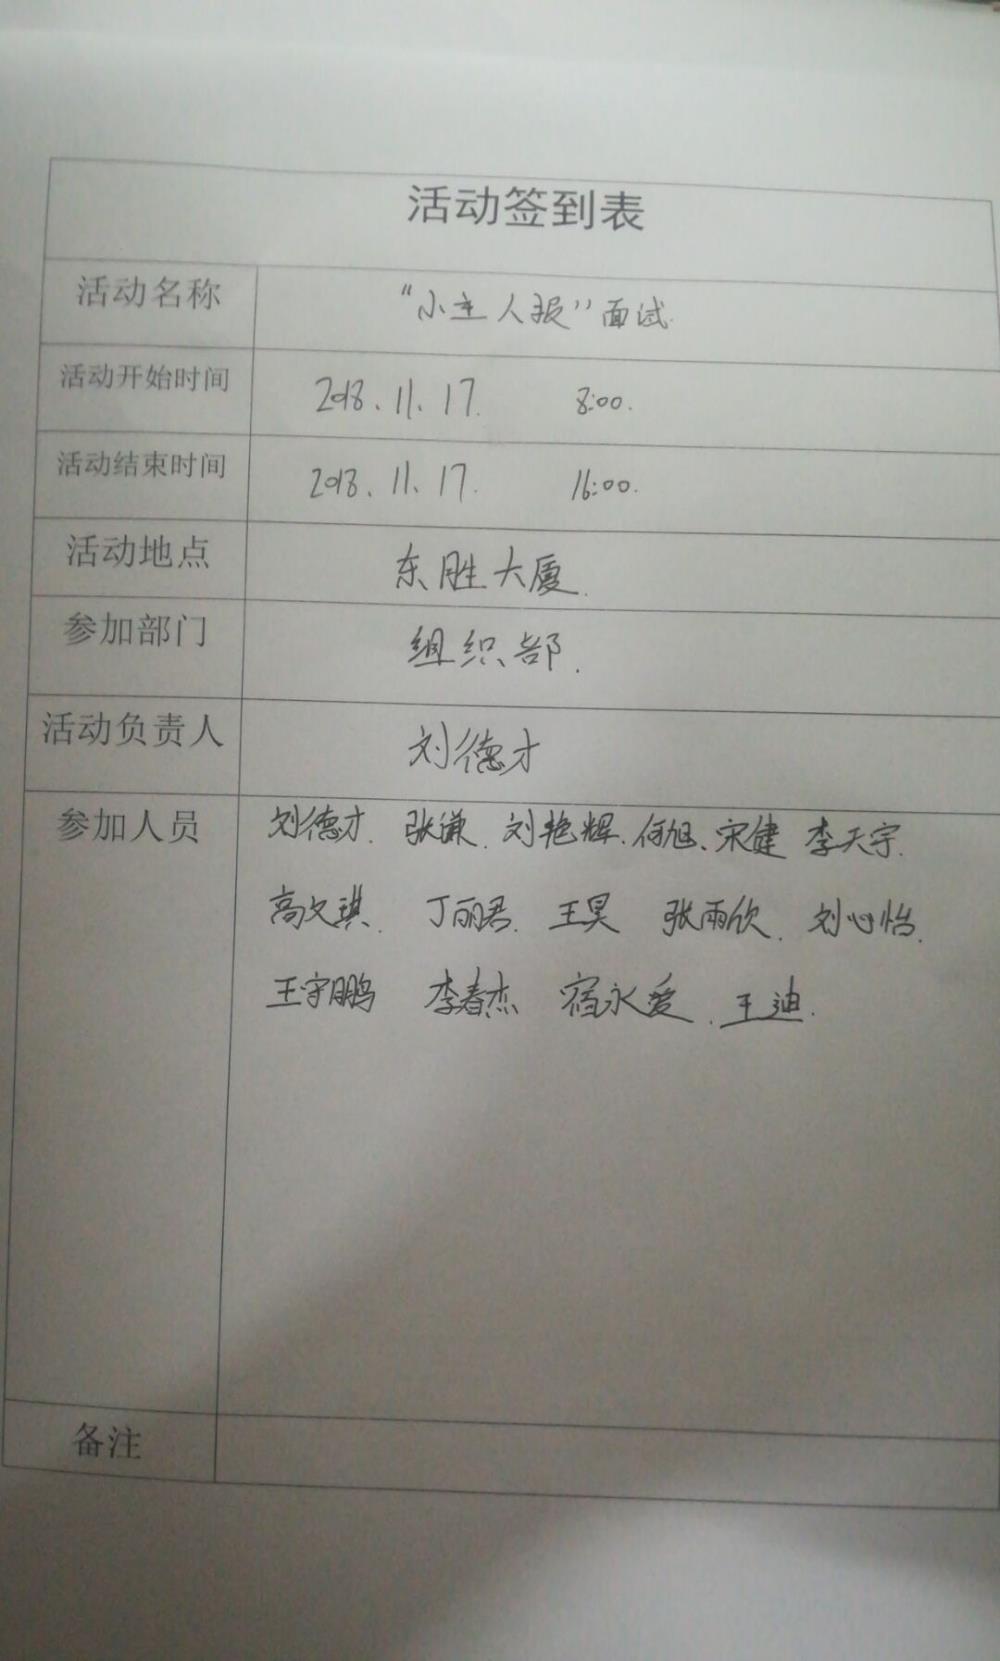 活动签到表
活动名称 “小主人报”面试.
活动开始时间 2018.11.17. 8:00.
活动结束时间 2018.11.17. 16:00.
活动地点 东胜大厦.
参加部门 组织部.
活动负责人 刘德才
参加人员 刘德才. 张谦. 刘艳辉. 何旭、宋健 李天宇.
高文琪. 丁丽君. 王昊 张雨欣. 刘心怡.
王守鹏 李春杰 宿永爱. 王迪.
备注